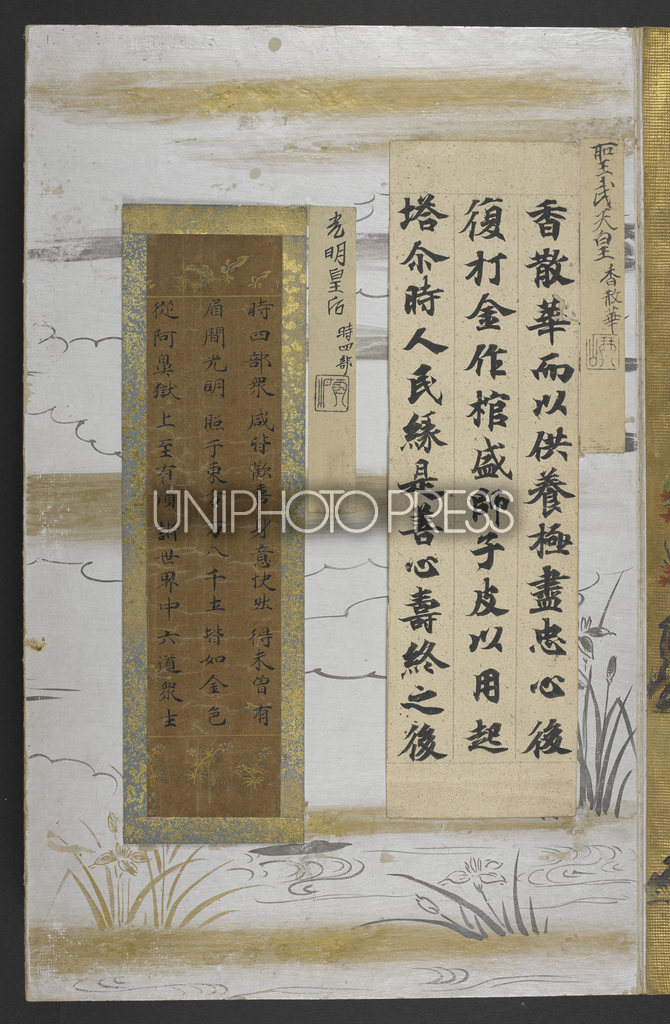 聖武天皇 香散華
香散華而以供養極盡忠心後
復打金作棺盛師子皮以用起
塔尒時人民緣是善心壽終之後
光明皇后 時四部
時四部衆咸皆歡喜身意快然得未曾有
眉間光明照于東方八千土皆如金色
從阿鼻獄上至有頂諸世界中六道衆生
UNIPHOTO PRESS